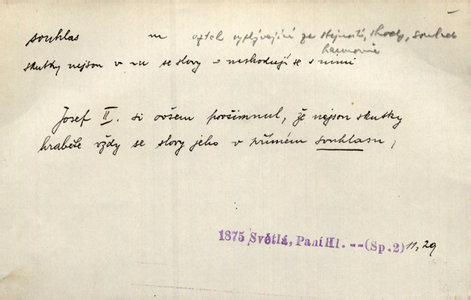 souhlas m vztah vyplývající ze stejnosti, shody, souhlas
harmonie
skutky nejsou v -u se slovy = neshodují se s nimi
Josef II. si ovšem povšimnul, že nejsou skutky
hraběte vždy se slovy jeho v přímém souhlasu,
1875 Světlá, Paní Hl. -- (Sp.2) 11, 29